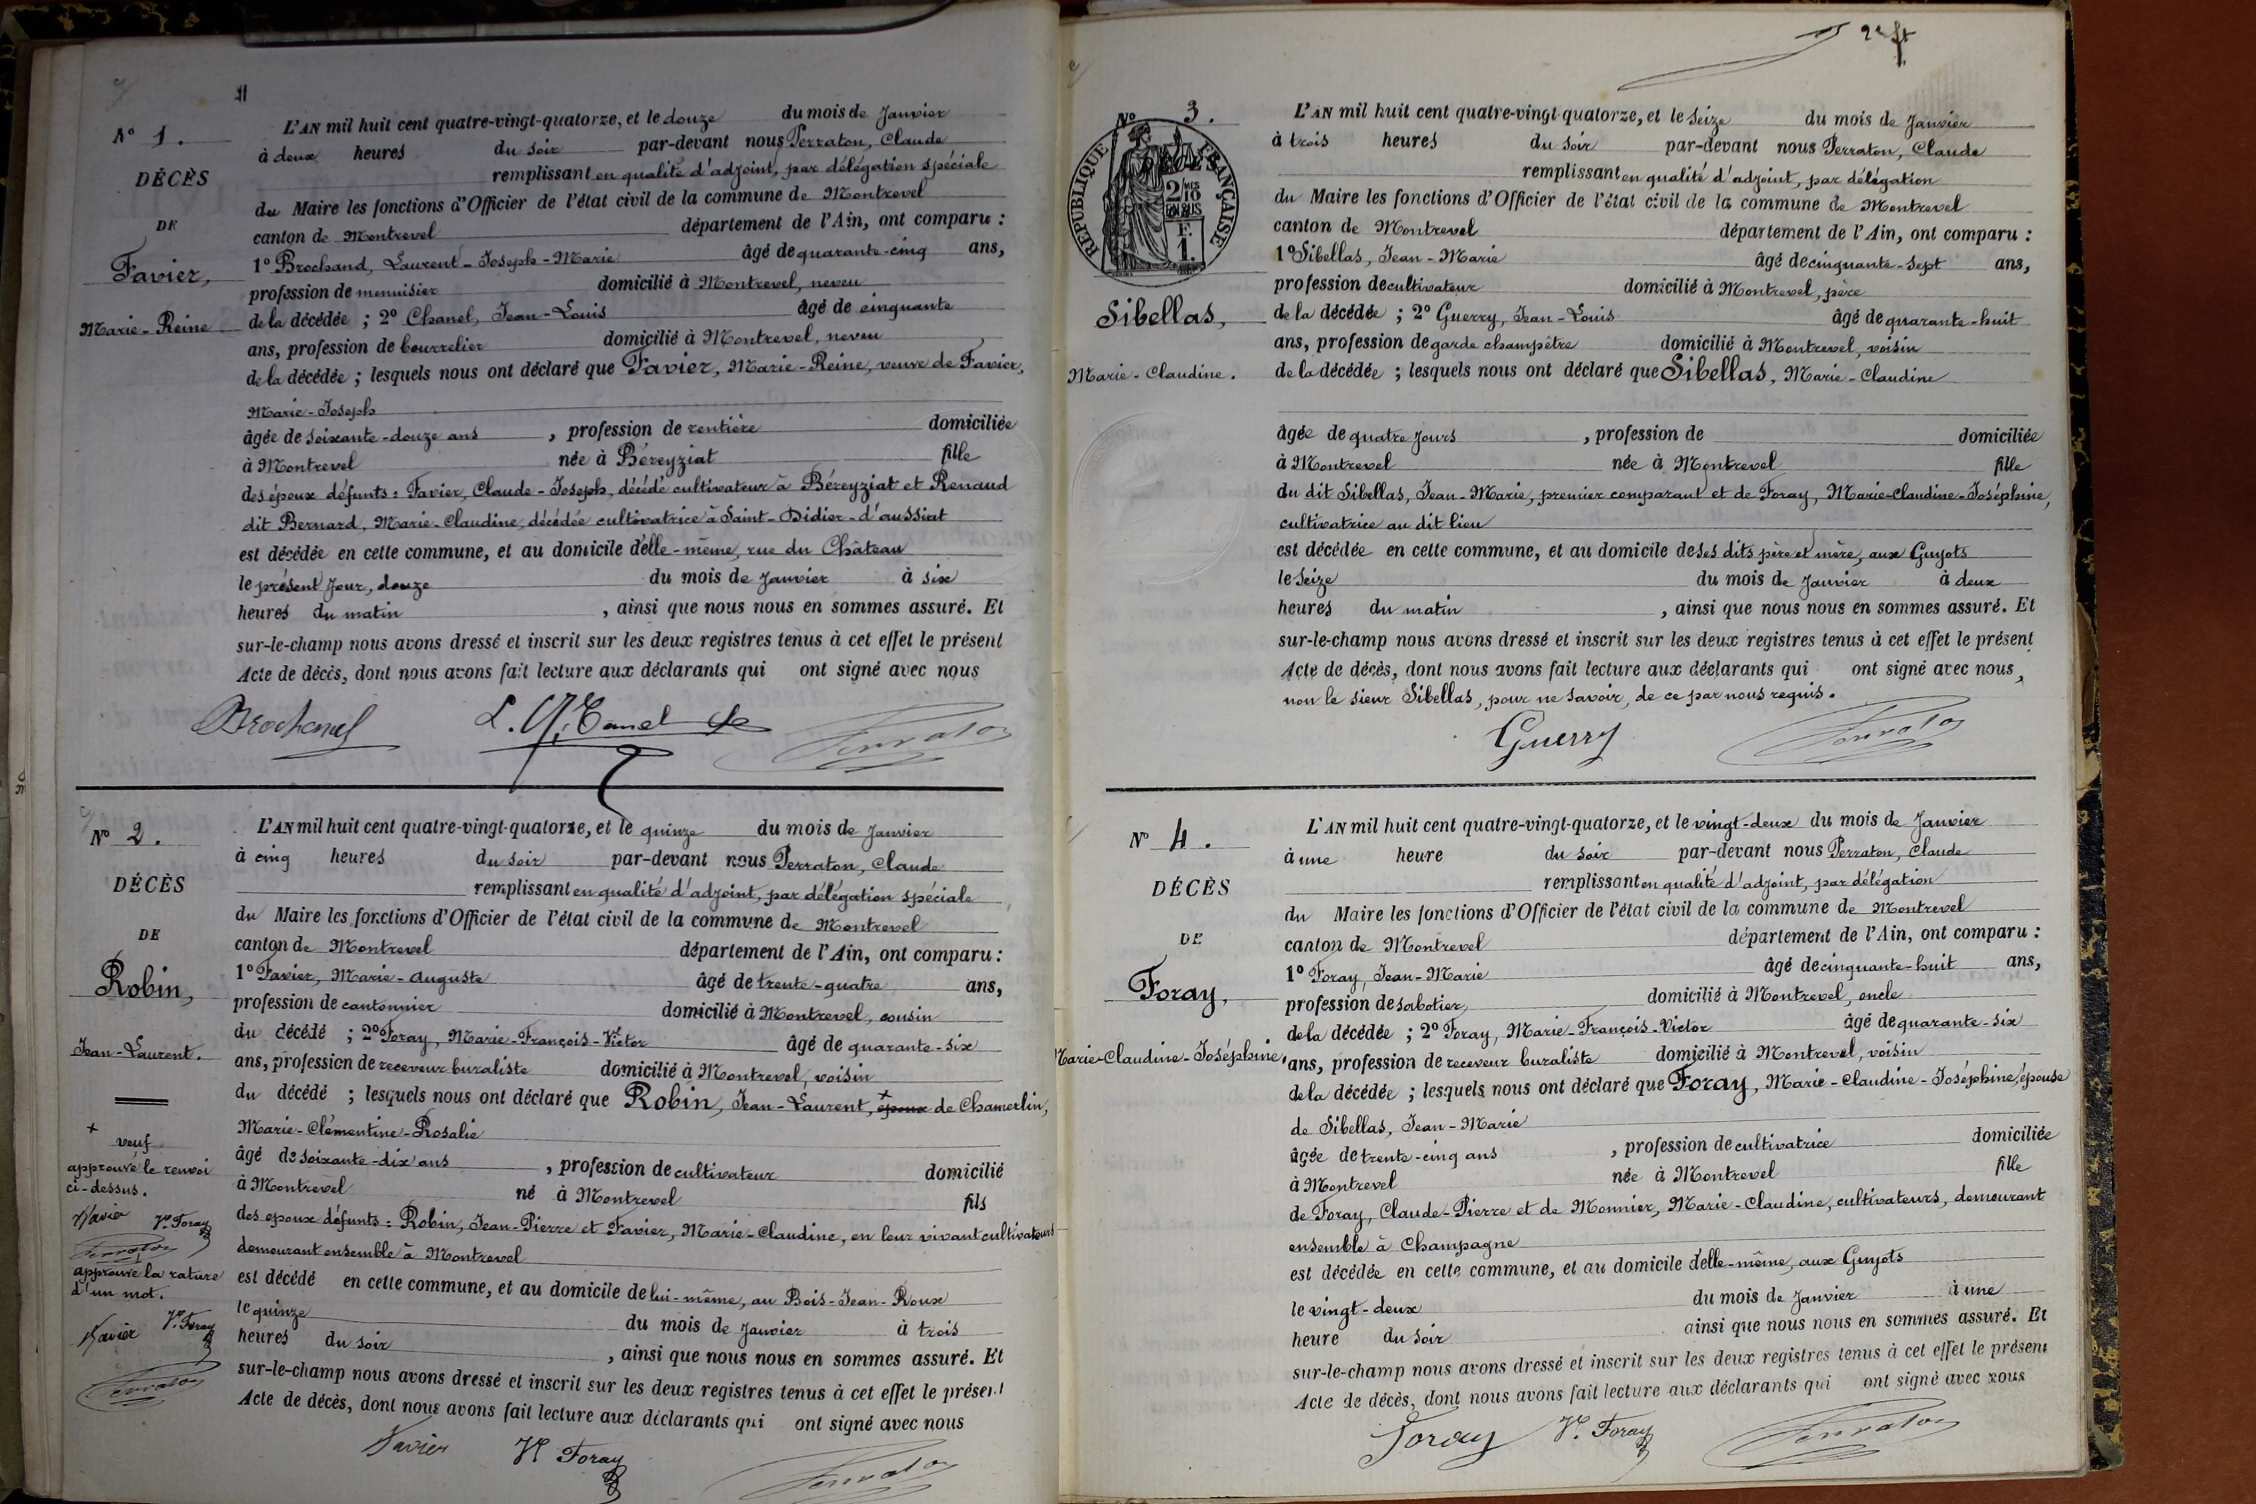 N° 1.
DÉCÈS
DE
Favier,
Marie-Reine
L'AN mil huit cent quatre-vingt-quatorze, et le douze du mois de Janvier
à deux heures du soir par-devant nous Perraton, Claude
remplissant en qualité d'adjoint, par délégation spéciale
du Maire les fonctions d'Officier de l'état civil de la commune de Montrevel
canton de Montrevel département de l'Ain, ont comparu :
1° Brochand, Laurent-Joseph-Marie âgé de quarante-cinq ans,
profession de menuisier domicilié à Montrevel, neveu
de la décédée ; 2° Chanel, Jean-Louis âgé de cinquante
ans, profession de bourrelier domicilié à Montrevel, neveu
de la décédée ; lesquels nous ont déclaré que Favier, Marie-Reine, veuve de Favier,
Marie-Joseph
âgée de soixante-douze ans , profession de rentière domiciliée
à Montrevel née à Béreyziat fille
des époux défunts : Favier, Claude-Joseph, décédé cultivateur à Béreyziat et Renaud
dit Bernard, Marie-Claudine, décédée cultivatrice à Saint-Didier-d'aussiat
est décédée en cette commune, et au domicile d'elle-même, rue du Château
le présent jour, douze du mois de Janvier à six
heures du matin , ainsi que nous nous en sommes assuré. Et
sur-le-champ nous avons dressé et inscrit sur les deux registres tenus à cet effet le présent
Acte de décès, dont nous avons fait lecture aux déclarants qui ont signé avec nous
Brochand Perraton
N° 2.
DÉCÈS
DE
Robin,
Jean-Laurent.
+ veuf
approuvé le renvoi
ci-dessus.
Favier Vr. Foray
Perraton
approuvé la rature
d'un mot.
Favier Vr. Foray
Perraton
L'AN mil huit cent quatre-vingt-quatorze, et le quinze du mois de Janvier
à cinq heures du soir par-devant nous Perraton, Claude
remplissant en qualité d'adjoint, par délégation spéciale
du Maire les fonctions d'Officier de l'état civil de la commune de Montrevel
canton de Montrevel département de l'Ain, ont comparu :
1° Favier, Marie-Auguste âgé de trente-quatre ans,
profession de cantonnier domicilié à Montrevel, cousin
du décédé ; 2° Foray, Marie-François-Victor âgé de quarante-six
ans, profession de receveur buraliste domicilié à Montrevel, voisin
du décédé ; lesquels nous ont déclaré que Robin, Jean-Laurent, + époux de Chamerlin,
Marie-Clémentine-Rosalie
âgé de soixante-dix ans , profession de cultivateur domicilié
à Montrevel né à Montrevel fils
des époux défunts : Robin, Jean-Pierre et Favier, Marie-Claudine, en leur vivant cultivateurs
demeurant ensemble à Montrevel
est décédé en cette commune, et au domicile de lui-même, au Bois-Jean-Roux
le quinze du mois de Janvier à trois
heures du soir , ainsi que nous nous en sommes assuré. Et
sur-le-champ nous avons dressé et inscrit sur les deux registres tenus à cet effet le présent
Acte de décès, dont nous avons fait lecture aux déclarants qui ont signé avec nous
Favier Vr Foray Perraton
2e ft
N° 3.
RÉPUBLIQUE FRANÇAISE
DÉCÈS
Sibellas,
Marie-Claudine.
L'AN mil huit cent quatre-vingt-quatorze, et le seize du mois de Janvier
à trois heures du soir par-devant nous Perraton, Claude
remplissant en qualité d'adjoint, par délégation
du Maire les fonctions d'Officier de l'état civil de la commune de Montrevel
canton de Montrevel département de l'Ain, ont comparu :
1° Sibellas, Jean-Marie âgé de cinquante-sept ans,
profession de cultivateur domicilié à Montrevel, père
de la décédée ; 2° Guerry, Jean-Louis âgé de quarante-huit
ans, profession de garde champêtre domicilié à Montrevel, voisin
de la décédée ; lesquels nous ont déclaré que Sibellas, Marie-Claudine
âgée de quatre jours , profession de domiciliée
à Montrevel née à Montrevel fille
du dit Sibellas, Jean-Marie, premier comparant et de Foray, Marie-Claudine-Joséphine,
cultivatrice au dit lieu
est décédée en cette commune, et au domicile de ses dits père et mère, aux Guyots
le seize du mois de Janvier à deux
heures du matin , ainsi que nous nous en sommes assuré. Et
sur-le-champ nous avons dressé et inscrit sur les deux registres tenus à cet effet le présent
Acte de décès, dont nous avons fait lecture aux déclarants qui ont signé avec nous,
non le sieur Sibellas, pour ne savoir, de ce par nous requis.
Guerry Perraton
N° 4.
DÉCÈS
DE
Foray,
Marie-Claudine-Joséphine,
L'AN mil huit cent quatre-vingt-quatorze, et le vingt-deux du mois de Janvier
à une heure du soir par-devant nous Perraton, Claude
remplissant en qualité d'adjoint, par délégation
du Maire les fonctions d'Officier de l'état civil de la commune de Montrevel
canton de Montrevel département de l'Ain, ont comparu :
1° Foray, Jean-Marie âgé de cinquante-huit ans,
profession de sabotier domicilié à Montrevel, oncle
de la décédée ; 2° Foray, Marie-François-Victor âgé de quarante-six
ans, profession de receveur buraliste domicilié à Montrevel, voisin
de la décédée ; lesquels nous ont déclaré que Foray, Marie-Claudine-Joséphine, épouse
de Sibellas, Jean-Marie
âgée de trente-cinq ans , profession de cultivatrice domiciliée
à Montrevel née à Montrevel fille
de Foray, Claude-Pierre et de Monnier, Marie-Claudine, cultivateurs, demeurant
ensemble à Champagne
est décédée en cette commune, et au domicile d'elle-même, aux Guyots
le vingt-deux du mois de Janvier à une
heure du soir ainsi que nous nous en sommes assuré. Et
sur-le-champ nous avons dressé et inscrit sur les deux registres tenus à cet effet le présent
Acte de décès, dont nous avons fait lecture aux déclarants qui ont signé avec nous
Foray Vr. Foray Perraton